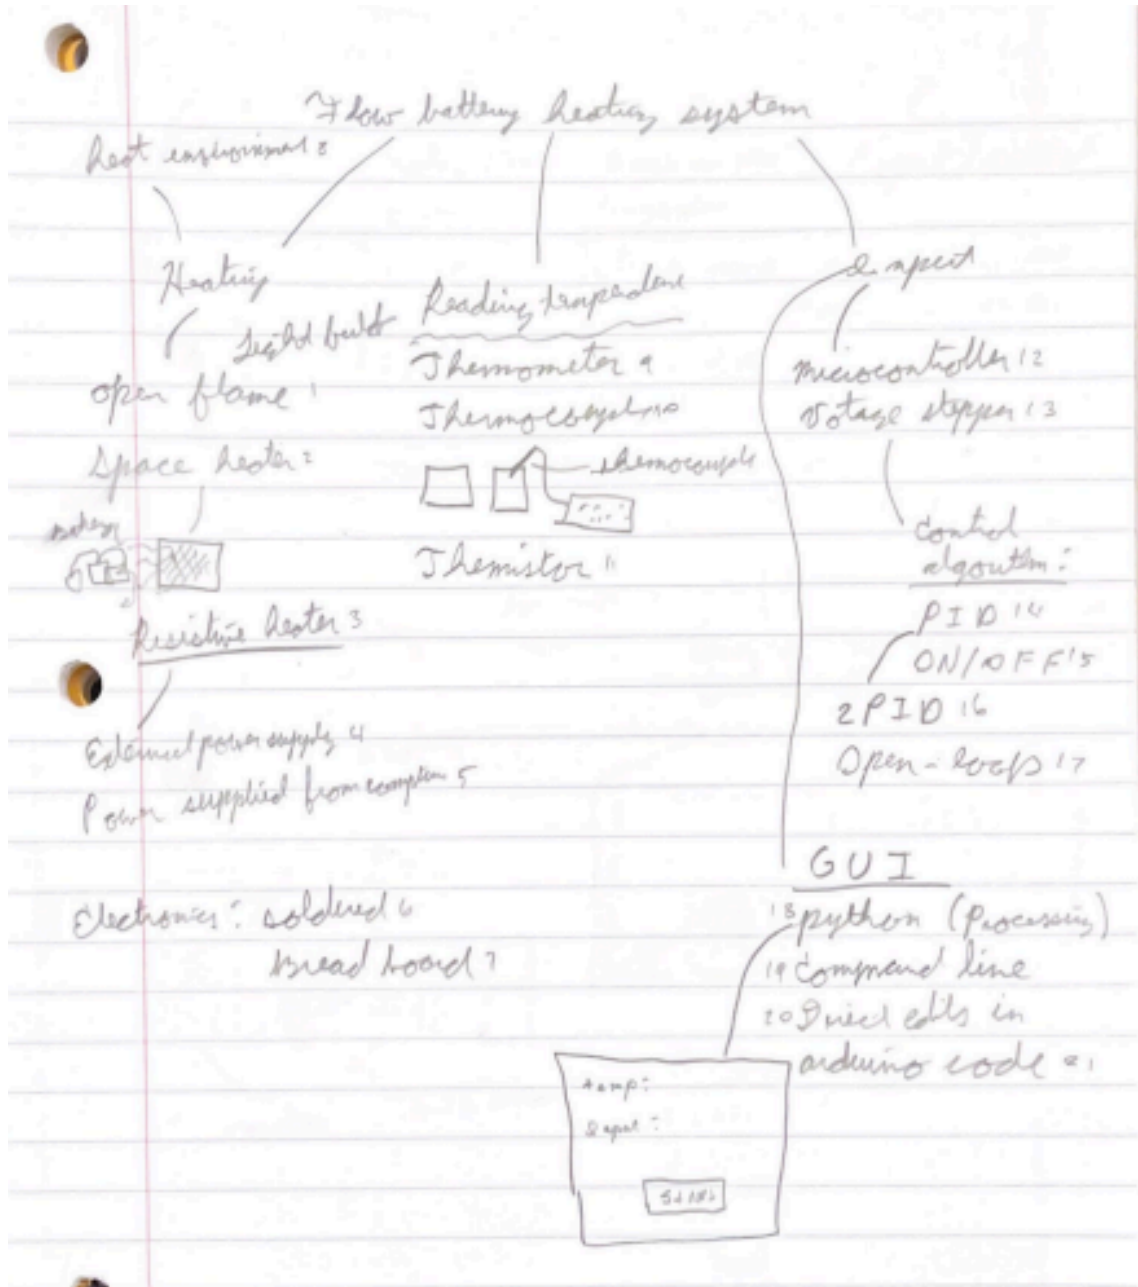 Flow battery heating system
heat environment 8
Heating
Light bulb
open flame 1
Space heater 2
Resistive heater 3
External power supply 4
Power supplied from computer 5
Electronics: soldered 6
Bread board 7
Reading temperature
Thermometer 9
Thermocouple 10
thermocouple
Themistor 11
Input
microcontroller 12
Votage stepper 13
Control
algorithm:
PID 14
ON/OFF 15
2PID 16
Open-loop 17
GUI
18 python (Processing)
19 Command line
20 Direct edits in
arduino code 21
temp:
Input: